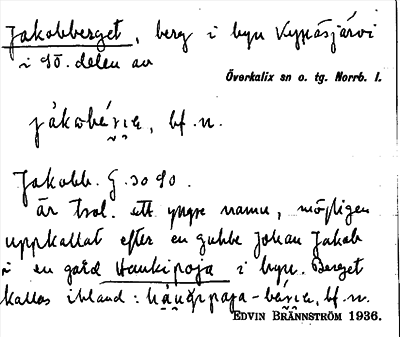 Jakobberget, berg i byn Vyssäsjärvi
i sö. delen av
Överkalix sn o. tg. Norrb. l.
jákobä́ri̭e, bf. n.
Jakobb. G. 30 sö.
är trol. ett yngre namn, möjligen
uppkallat efter en gubbe Johan Jakob
i en gård Haukipoja i byn. Berget
kallas ibland: bf. n.
EDVIN BRÄNNSTRÖM 1936.